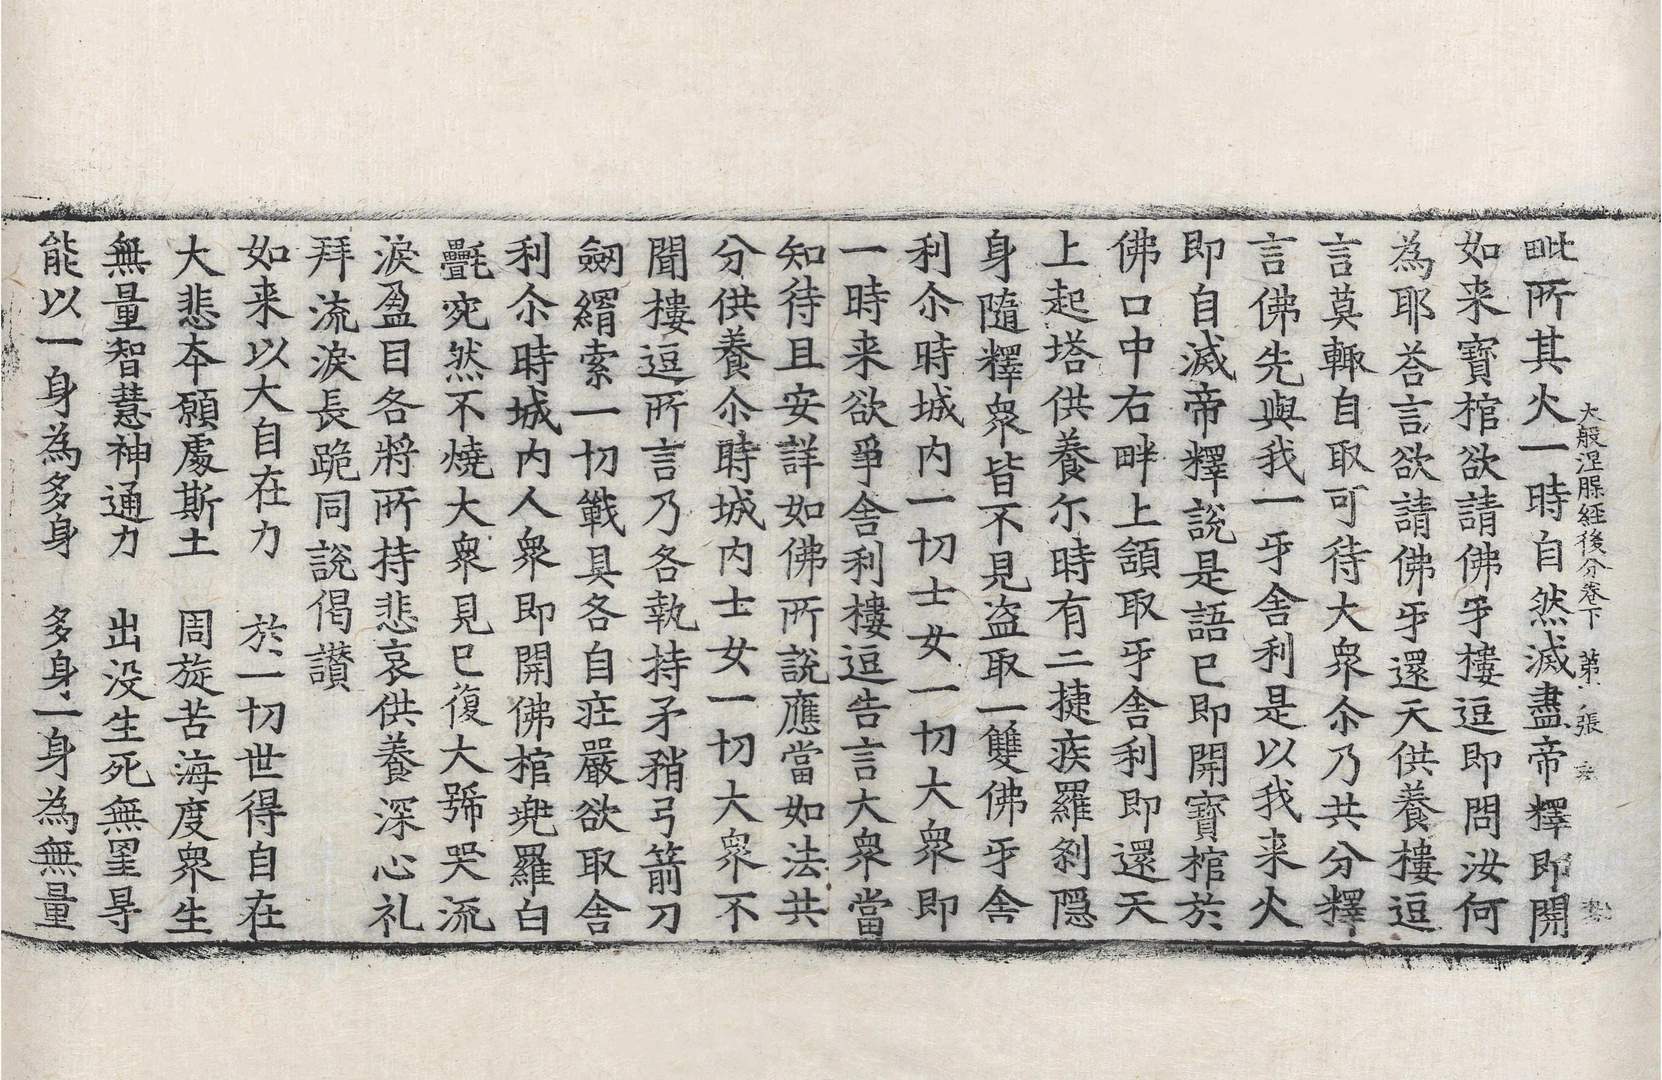 大般涅槃經後分卷下 第 張
毗所其火一時自然滅盡帝釋即開
如来寶棺欲請佛牙樓逗即問汝何
為耶荅言欲請佛牙還天供養樓逗
言莫輙自取可待大衆尒乃共分釋
言佛先與我一牙舎利是以我来火
即自滅帝釋說是語已即開寶棺於
佛口中右畔上頷取牙舎利即還天
上起塔供養尒時有二捷疾羅剎隱
身隨釋衆皆不見盗取一雙佛牙舎
利尒時城内一切士女一切大衆即
一時来欲爭舎利樓逗告言大衆當
知待且安詳如佛所說應當如法共
分供養尒時城内士女一切大衆不
聞樓逗所言乃各執持矛矟弓箭刀
劒羂索一切戰具各自庄嚴欲取舎
利尒時城内人衆即開佛棺兠羅白
氎宛然不燒大衆見已復大號哭流
淚盈目各將所持悲哀供養深心礼
拜流淚長跪同說偈讃
如来以大自在力 於一切世得自在
大悲夲願處斯土 周旋苦海度衆生
無量智慧神通力 出没生死無罣㝵
能以一身為多身 多身一身為無量